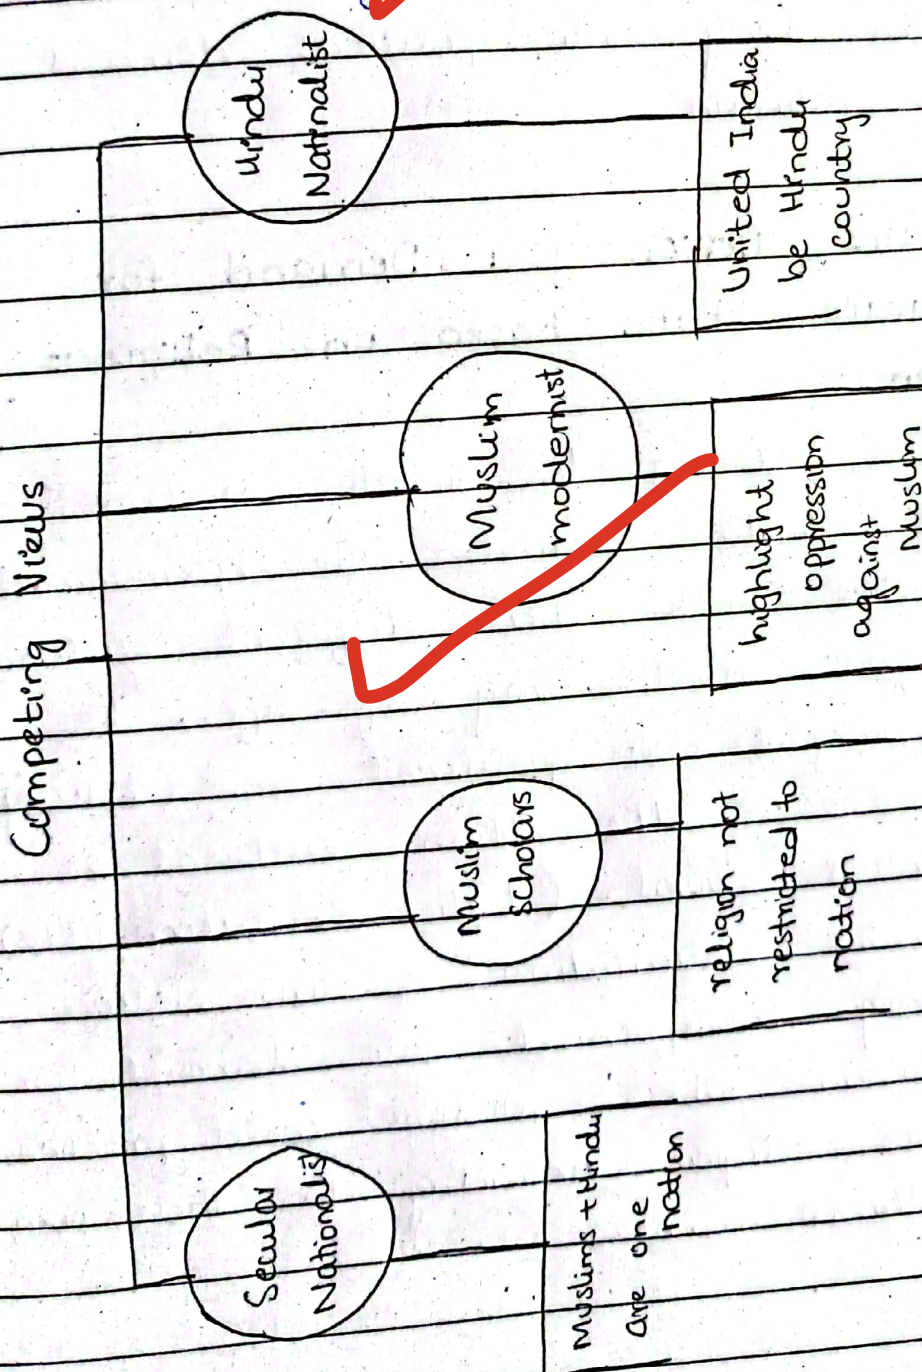 Competing Views
Secular
Nationalist
Muslim
Scholars
Muslim
modernist
Hindu
Nationalist
Muslims + Hindu
are one
nation
religion not
restricted to
nation
highlight
oppression
against
Muslim
United India
be Hindu
country
Demand for
Religious